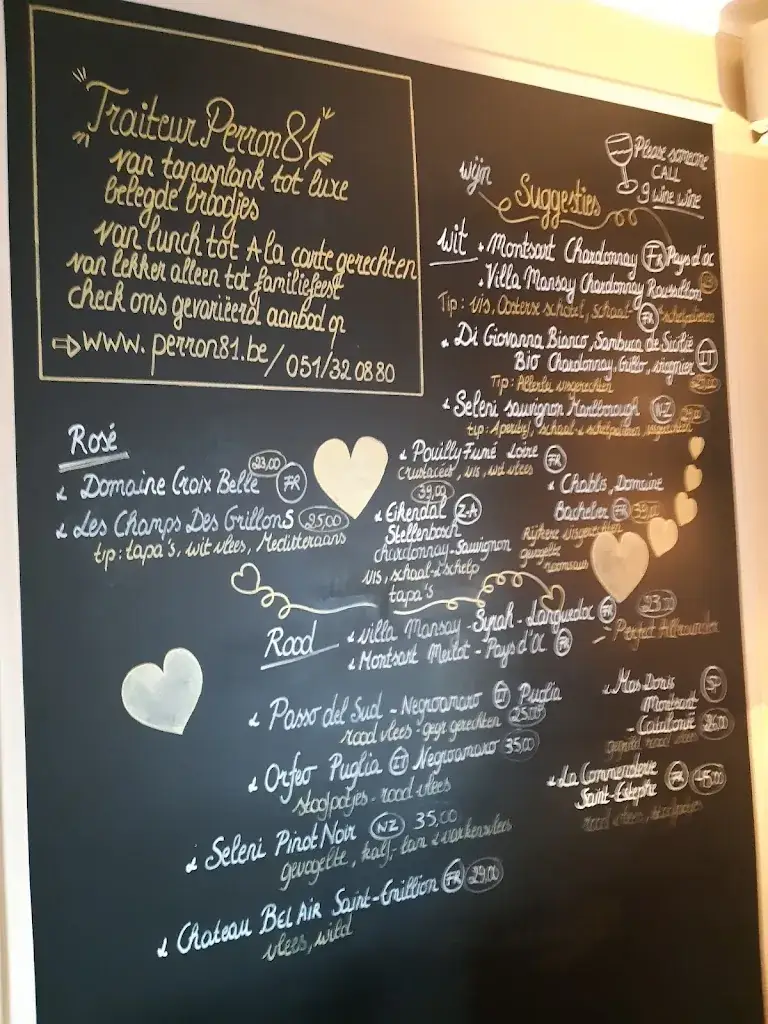 Traiteur Perron81
van tapasplank tot luxe
belegde broodjes
van lunch tot A la carte gerechten
van lekker alleen tot familiefeest
check ons gevariëerd aanbod op
www.perron81.be/051/32 08 80
Please someone
CALL
9 wine wine
wijn
Suggesties
wit
Montsart Chardonnay FR Pays d'oc
Villa Mansay Chardonnay Roussillon
Tip: vis, Oosterse schotel, schaal- FR schelpdieren
Di Giovanna Bianco, Sambuca de Sicilië
Bio Chardonnay, Grillo, viognier IT
Tip: Allerlei visgerechten
Seleni sauvignon Marlborough NZ
tip: Aperitif, schaal- & schelpdieren, visgerechten
Pouilly Fumé Loire FR
Crustaceet, vis, wit vlees
39,00
Eikendal Z-A
Stellenbosch
chardonnay-Sauvignon
vis, schaal- & schelp
tapa's
Chablis, Domaine
Bachelier FR
Rijkere visgerechten
gevogelte
roomsaus
Rosé
Domaine Croix Belle 23,00 FR
Les Champs Des Grillons 25,00
tip: tapa's, wit vlees, Meditteraans
Rood
Villa Mansay - Syrah - Languedoc FR 23,00
Montsart Merlot - Pays d'Oc FR
Perfect Allrounder
Passo del Sud - Negroamaro IT Puglia
rood vlees - gegr gerechten 25,00
Orfeo Puglia IT Negroamaro 35,00
stoofpotjes - rood vlees
Seleni Pinot Noir NZ 35,00
gevogelte, kalf,- lam & varkensvlees
Chateau Bel Air Saint-Emillion FR 29,00
vlees, wild
Mas Donis SP
Montsant
- Catalonië 26,00
gegrild rood vlees
La Commenderie
Saint-Estephe FR 45,00
rood vlees, stoofpotjes